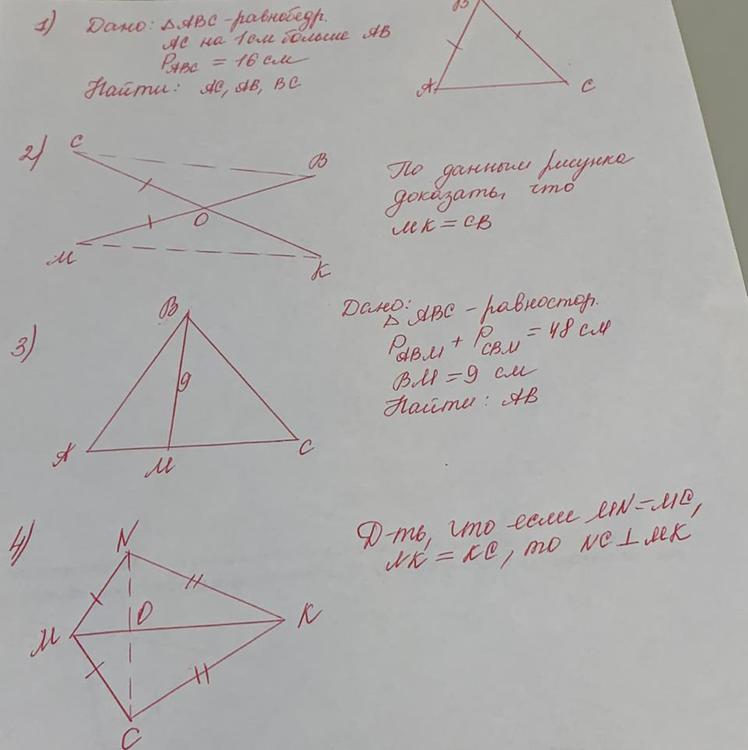 1) Дано: △ABC - равнобедр.
AC на 1 см больше AB
P_ABC = 16 см
Найти: AC, AB, BC
B
A
C
2)
C
B
O
M
K
По данным рисунка
доказать, что
MK = CB
3)
B
9
A
M
C
Дано:
△ABC - равностор.
P_ABM + P_CBM = 48 см
BM = 9 см
Найти: AB
4)
N
M
O
K
C
Д-ть, что если MN = MC,
NK = KC, то NC ⊥ MK